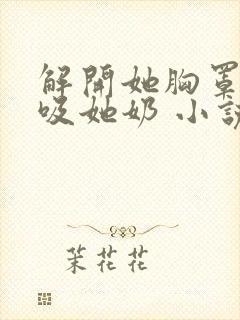 解開她胸罩
吸她奶 小說
茉花花